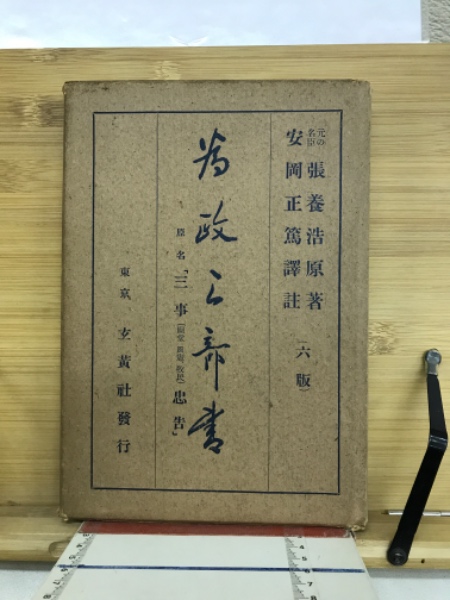 元の名臣 張養浩原著
安岡正篤譯註
(六版)
為政三部書
原名「三事(廟堂、風憲、牧民)忠告」
東京 玄黄社發行